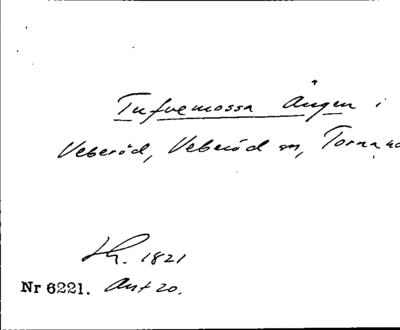 Tufvemossa Ängen i
Veberöd, Veberöd sn, Torna
Lh. 1821
Nr 6221. Ant 20.